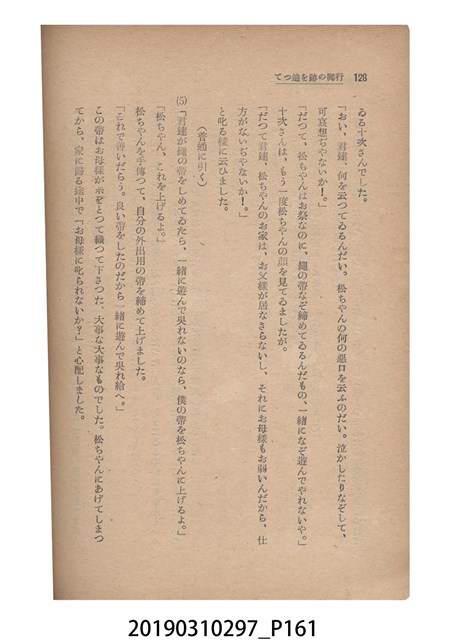 128　行脚の跡を追つて
ゐる十次さんでした。
「おい、君達、何を云つてゐるんだい。松ちやんの何の惡口を云ふのだい。泣かしたりなぞして、
可哀想ぢやないか！。」
「だつて、松ちやんはお祭なのに、繩の帶なぞ締めてゐるんだもの、一緒になぞ遊んでやれないや。」
十次さんは、もう一度松ちやんの顔を見てゐましたが。
「だつて君達、松ちやんのお家は、お父樣が居なさらないし、それにお母樣もお弱いんだから、仕
方がないぢやないか！。」
と叱る樣に云ひました。
（普通に引く）
(5)「君達が繩の帶をしめてゐたら、一緒に遊んで吳れないのなら、僕の帶を松ちやんに上げるよ。」
「松ちやん、これを上げるよ。」
松ちやんを手傳つて、自分の外出用の帶を締めて上げました。
「これで善いだらう。良い帶をしたのだから一緒に遊んで吳れ給へ。」
この帶はお母樣が糸をとつて織つて下さつた、大事な大事なものでした。松ちやんにあげてしまつ
てから、家に歸る途中で「お母樣に叱られないか？」と心配しました。
20190310297_P161